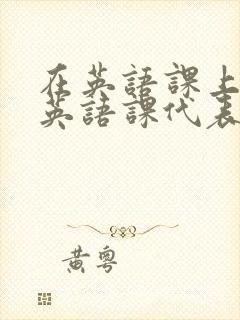 在英語課上
英語課代表
黃粵